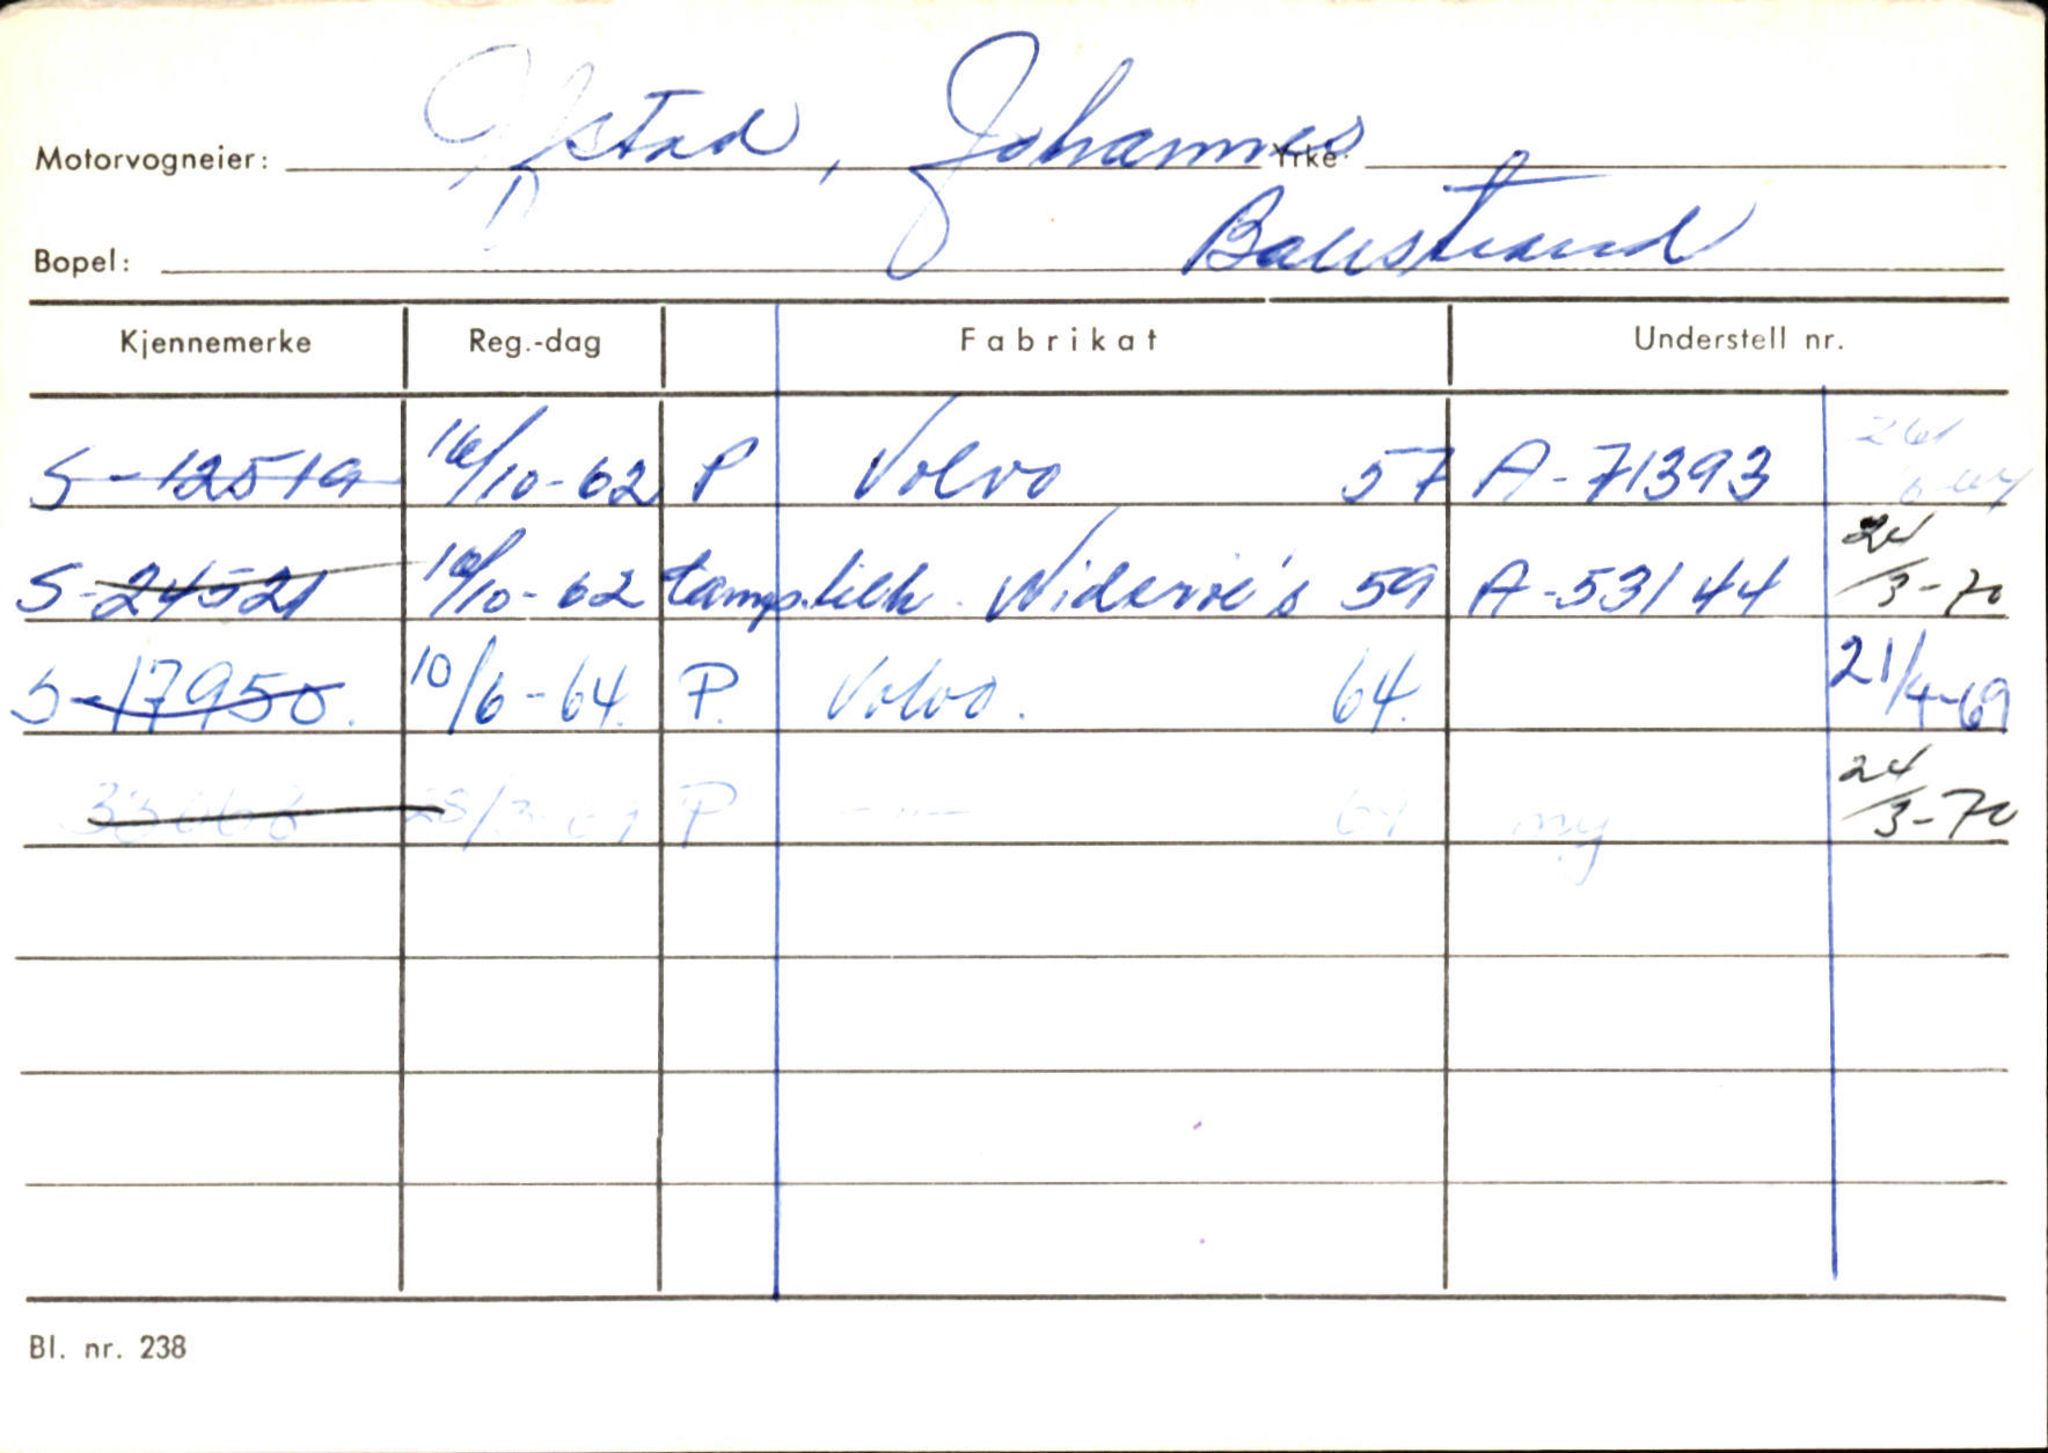 Motorvogneier: Ystad, Johannes Yrke:
Bopel: Balestrand
Kjennemerke Reg.-dag Fabrikat Understell nr.
S-12519 16/10-62 P Volvo 57 A-71393
S-24521 16/10-62 camp.tilh. Widerøe's 59 A-53144 24/3-70
S-17950. 10/6-64. P. Volvo. 64. 21/4-69
33068 28/3-69 P -"- 64 ny 24/3-70
Bl. nr. 238